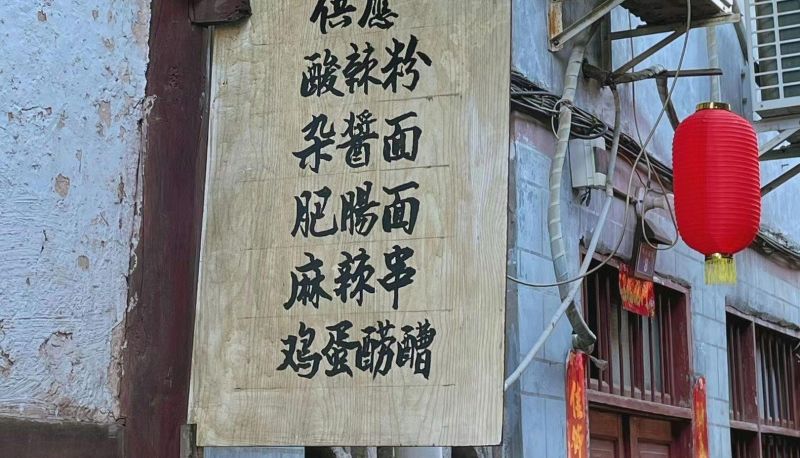 供應
酸辣粉
杂醬面
肥腸面
麻辣串
鸡蛋醪糟